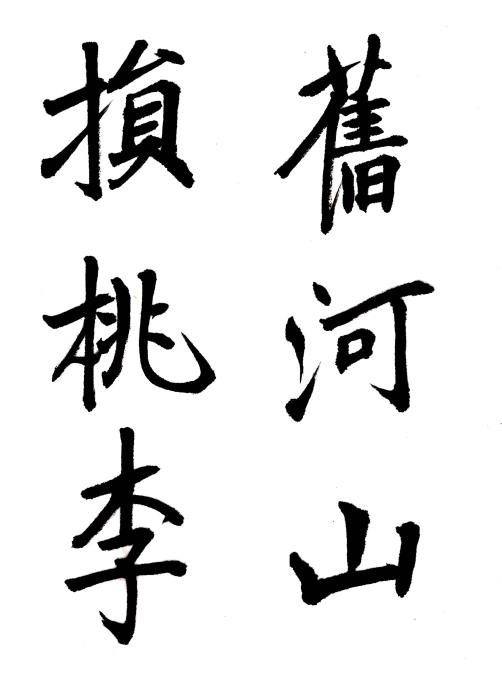 舊河山
損桃李